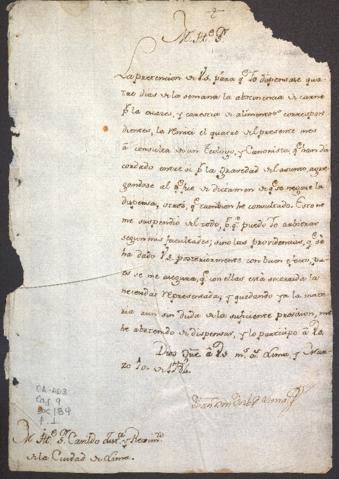 M. Itᵉ Sʳ
La pretencion de VS. para qᵉ Yo dispensase qua
tro dias de la semana la abstinencia de carne
pʳ la escases, y carestia de alimentos correspon
dientes, la remiti el quatro del presente mes
a consulta de un Teologo, y Canonista, qᵉ han da
cordado entre si pʳ la gravedad del asunto, agre
gandose al qᵉ fue de dictamen de qᵉ se negase la
dispensa, otros, qᵉ tambien he consultado. Esto no
me suspendio del todo, pʳ qᵉ puedo Yo arbitrar
segun mis facultades; sino las providencias, qᵉ se
ha dado VS. posteriormente con buen efecto, pu
es se me asegura, qᵉ con ellas está socorrida la
necesidad representada; y quedando ya la mate
ria aun sin duda de la suficiente provicion, me
he abstenido de dispensar, y lo participo a VS.
Dios gue. a VS. mˢ aˢ Lima, y Marzo
10. de
OA-AD3
Caj 9
Doc 189
f. 1
M. Itᵉ Sʳ Cavildo Justᵃ y Regimᵗᵒ
de la Ciudad de Lima.